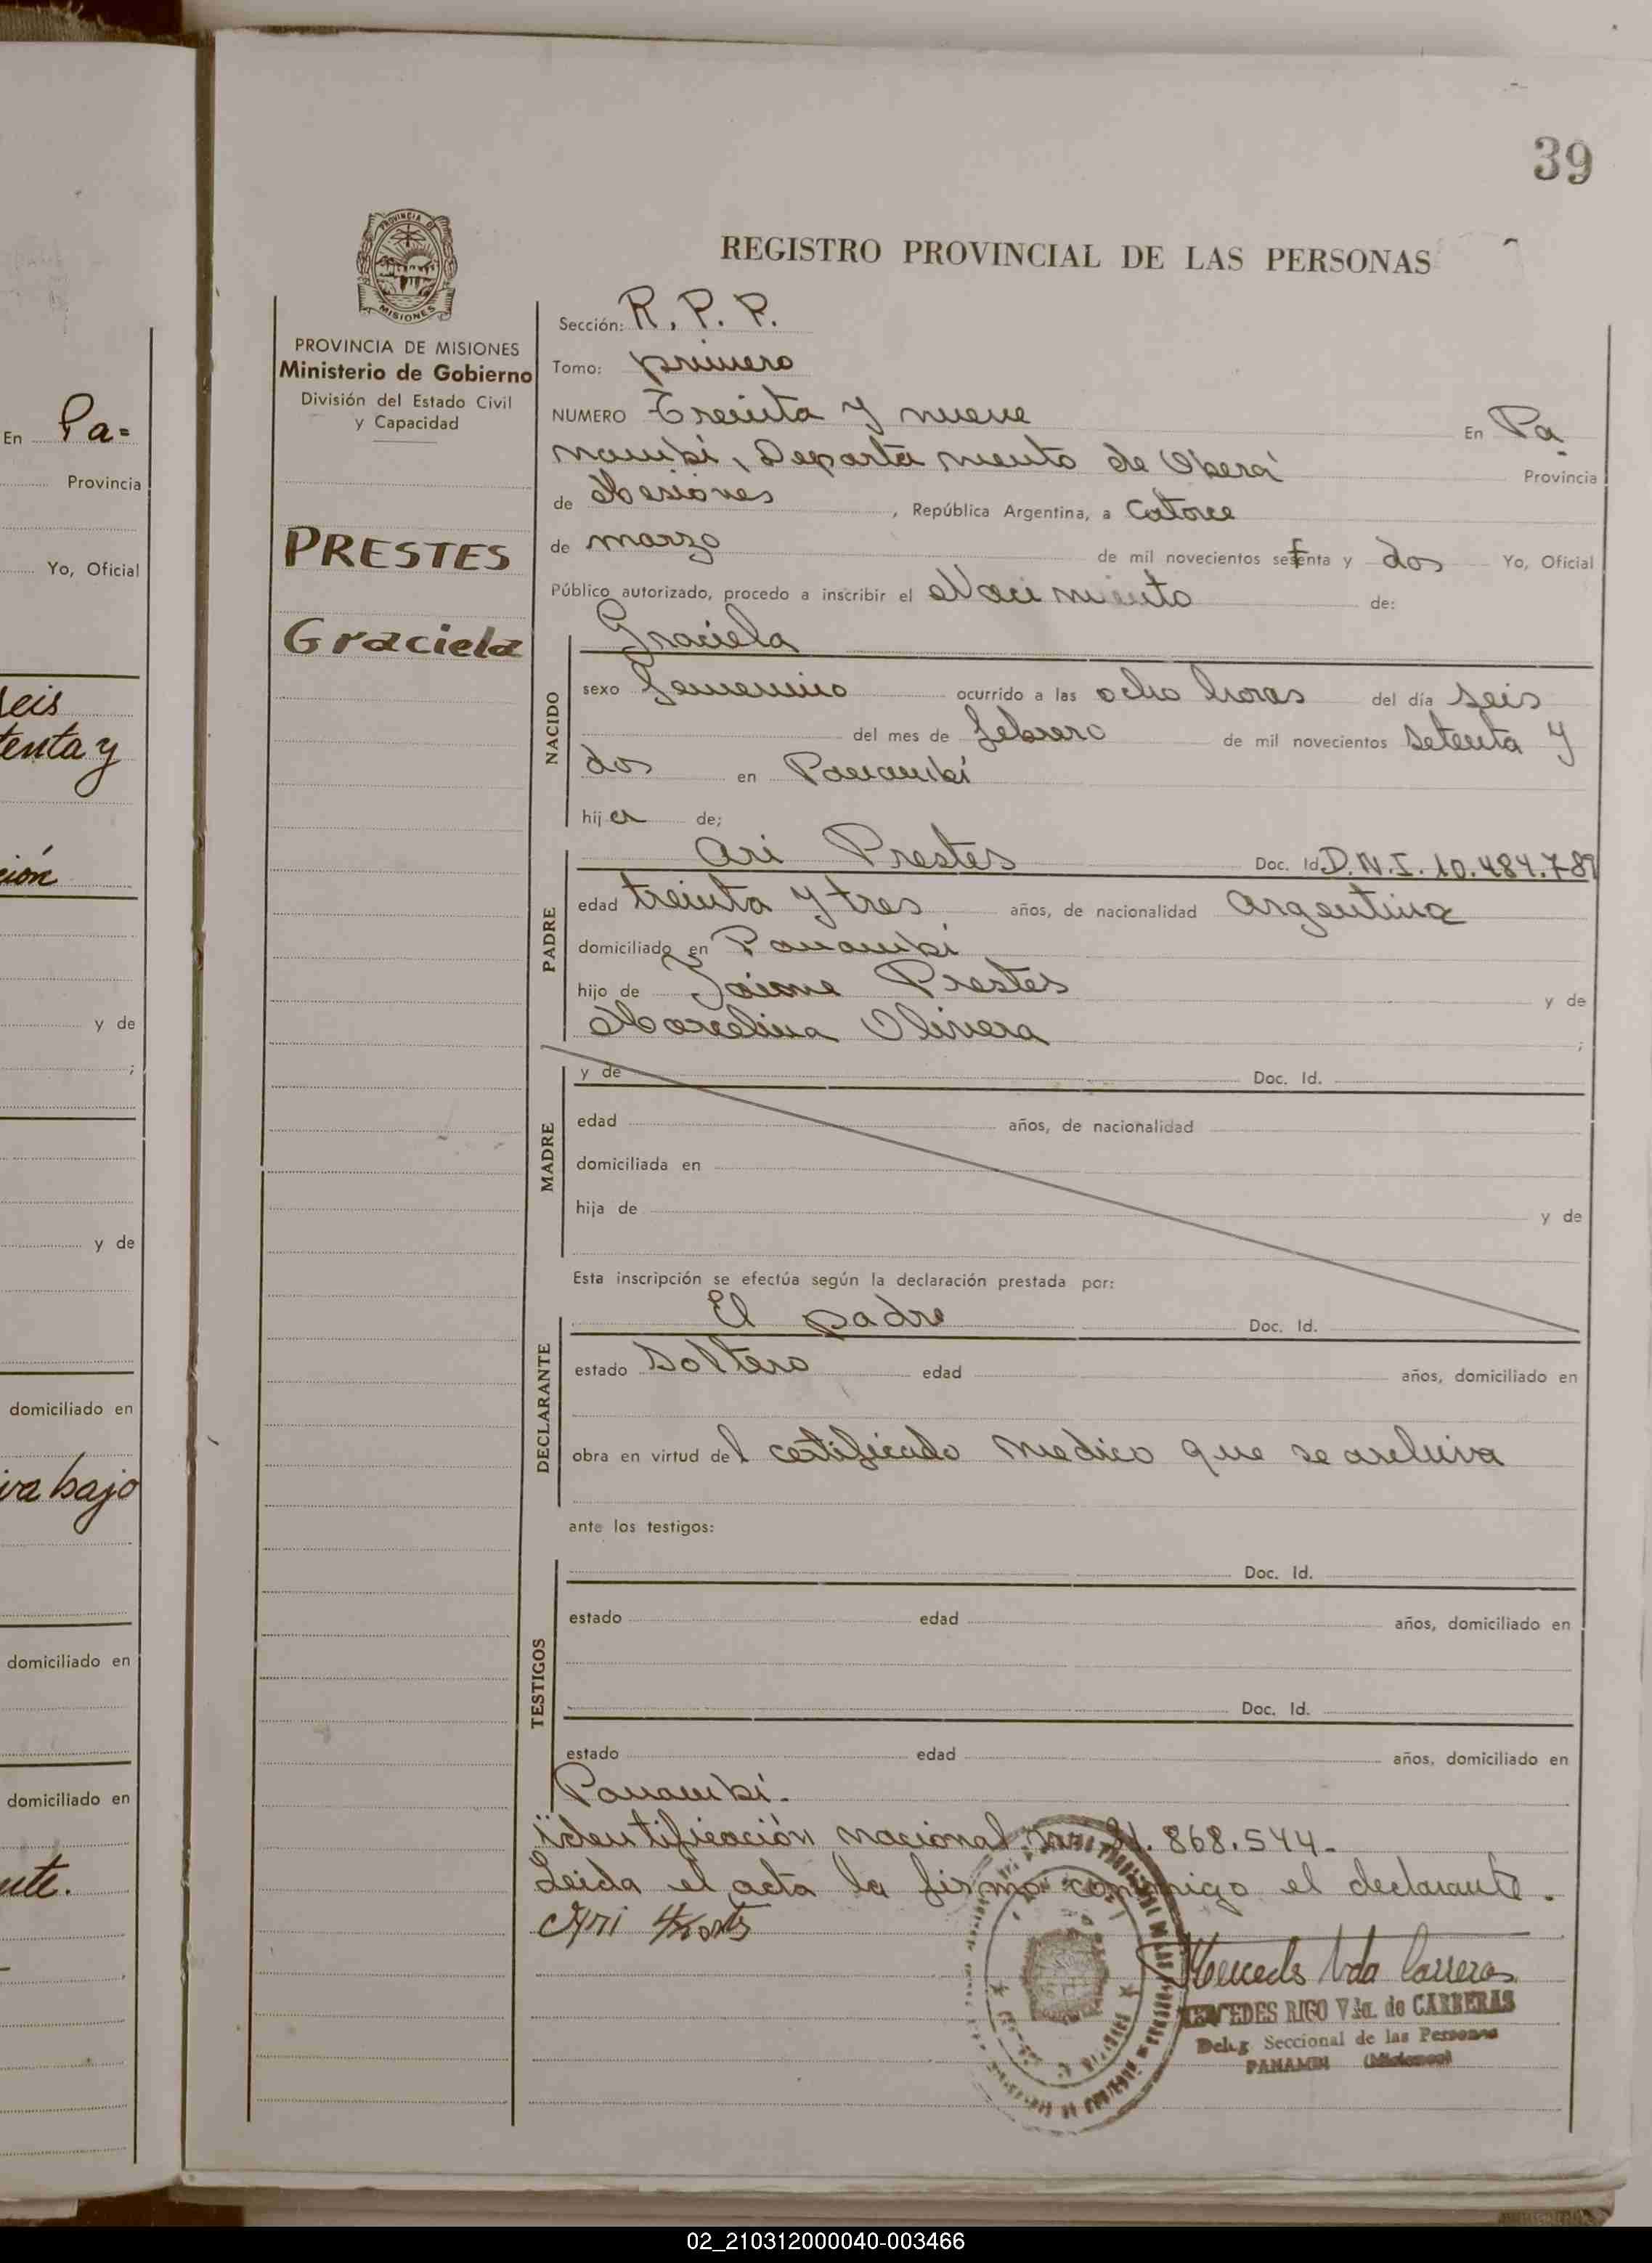 En Pa=
Provincia
Yo, Oficial
seis
tenta y
ción
y de
;
y de
domiciliado en
iva bajo
domiciliado en
domiciliado en
nte.
39
PROVINCIA DE
MISIONES
REGISTRO PROVINCIAL DE LAS PERSONAS
PROVINCIA DE MISIONES
Ministerio de Gobierno
División del Estado Civil
y Capacidad
PRESTES
Graciela
Sección: R. P. P.
Tomo: primero
NUMERO Treinta y nueve En Pa-
nambí, Departamento de Oberá Provincia
de Misiones, República Argentina, a Catorce
de marzo de mil novecientos setenta y dos Yo, Oficial
Público autorizado, procedo a inscribir el Nacimiento de:
NACIDO
Graciela
sexo femenino ocurrido a las ocho horas del día seis
del mes de febrero de mil novecientos setenta y
dos en Panambí
hija de;
PADRE
Ari Prestes Doc. Id. D.N.I. 10.484.789
edad treinta y tres años, de nacionalidad Argentina
domiciliado en Panambí
hijo de Jaime Prestes y de
Marcelina Olivera ;
MADRE
y de Doc. Id.
edad años, de nacionalidad
domiciliada en
hija de y de
Esta inscripción se efectúa según la declaración prestada por:
DECLARANTE
El padre Doc. Id.
estado soltero edad años, domiciliado en
obra en virtud del certificado medico que se archiva
ante los testigos:
TESTIGOS
Doc. Id.
estado edad años, domiciliado en
Doc. Id.
estado edad años, domiciliado en
Panambí.
identificación nacional 21.868.544.
Leida el acta la firma conmigo el declarante.
Ari
Mercedes Vda Carreras
MERCEDES RIGO Vda. de CARRERAS
Deleg Seccional de las Personas
PANAMBI (Misiones)
02_210312000040-003466